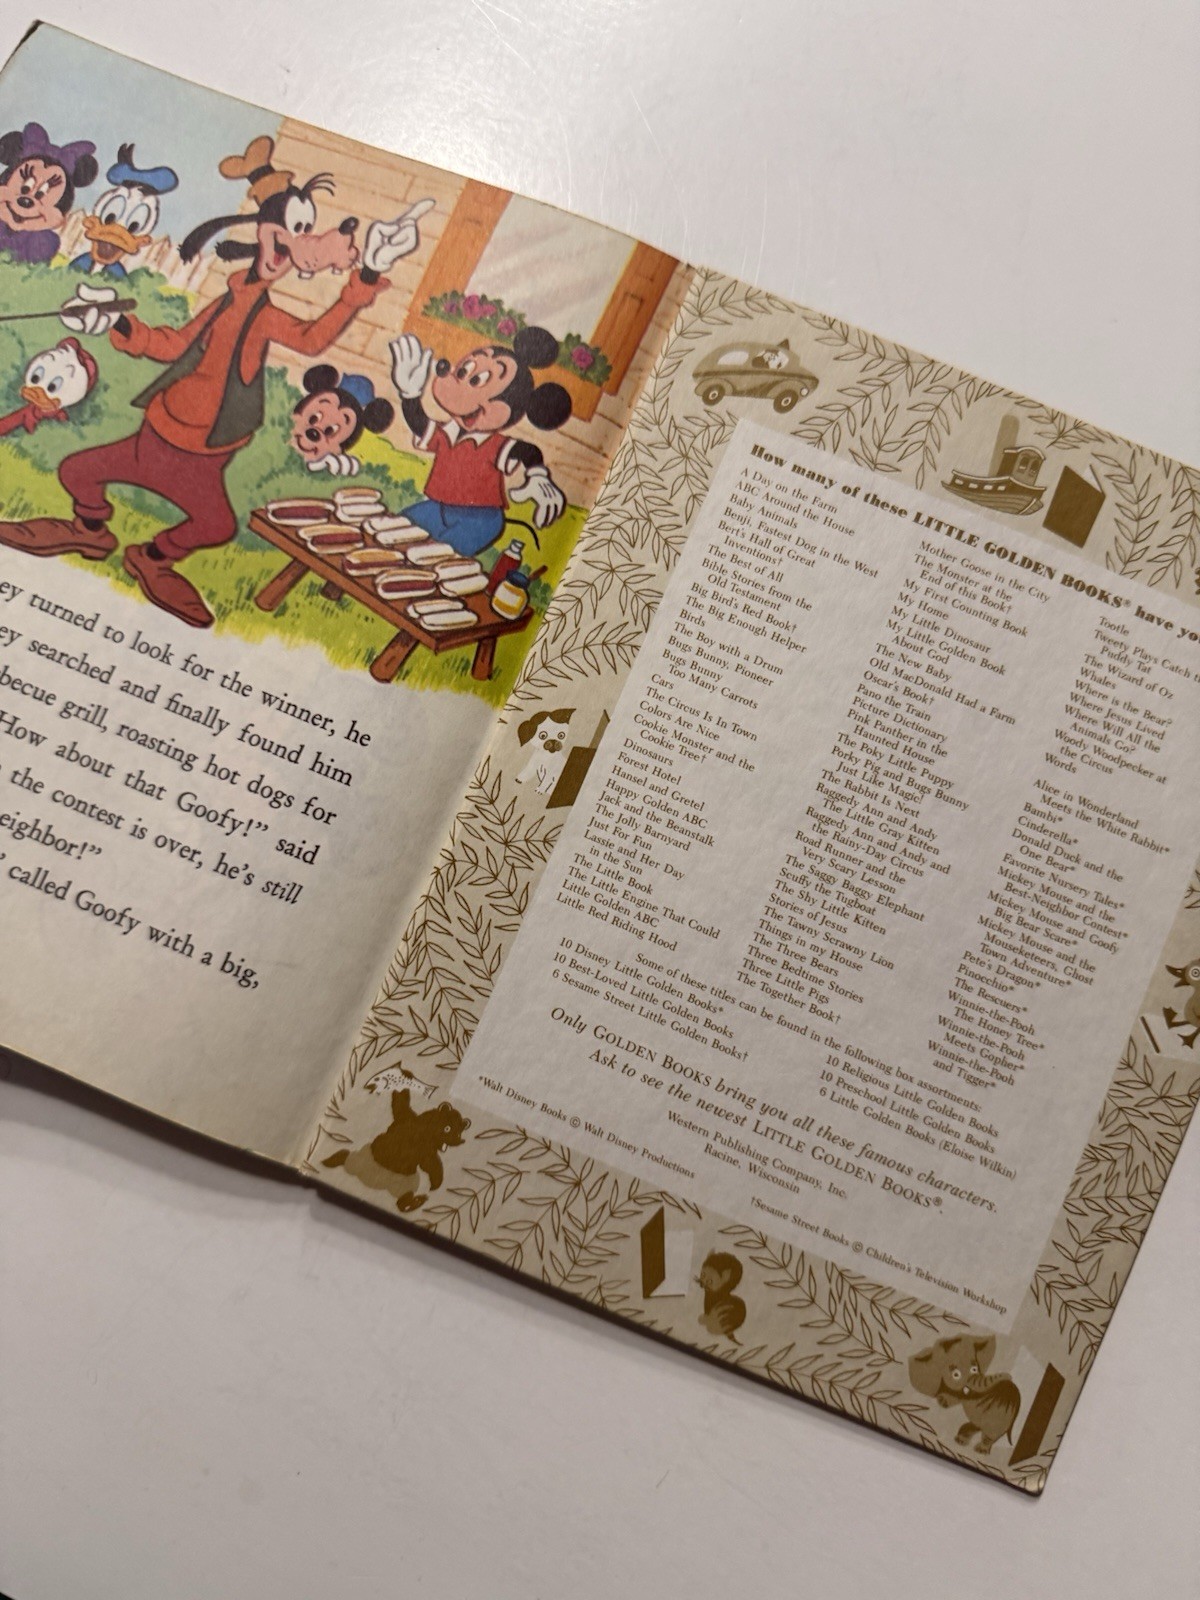 ey turned to look for the winner, he
ey searched and finally found him
becue grill, roasting hot dogs for
How about that Goofy!” said
the contest is over, he’s still
eighbor!”
” called Goofy with a big,
How many of these LITTLE GOLDEN BOOKS® have yo
A Day on the Farm
ABC Around the House
Baby Animals
Benji, Fastest Dog in the West
Bert's Hall of Great
Inventions†
The Best of All
Bible Stories from the
Old Testament
Big Bird's Red Book†
The Big Enough Helper
Birds
The Boy with a Drum
Bugs Bunny, Pioneer
Bugs Bunny
Too Many Carrots
Cars
The Circus Is In Town
Colors Are Nice
Cookie Monster and the
Cookie Tree†
Dinosaurs
Forest Hotel
Hansel and Gretel
Happy Golden ABC
Jack and the Beanstalk
The Jolly Barnyard
Just For Fun
Lassie and Her Day
in the Sun
The Little Book
The Little Engine That Could
Little Golden ABC
Little Red Riding Hood
Mother Goose in the City
The Monster at the
End of this Book†
My First Counting Book
My Home
My Little Dinosaur
My Little Golden Book
About God
The New Baby
Old MacDonald Had a Farm
Oscar's Book†
Pano the Train
Picture Dictionary
Pink Panther in the
Haunted House
The Poky Little Puppy
Porky Pig and Bugs Bunny
Just Like Magic!
The Rabbit Is Next
Raggedy Ann and Andy
The Little Gray Kitten
Raggedy Ann and Andy and
the Rainy-Day Circus
Road Runner and the
Very Scary Lesson
The Saggy Baggy Elephant
Scuffy the Tugboat
The Shy Little Kitten
Stories of Jesus
The Tawny Scrawny Lion
Things in my House
The Three Bears
Three Bedtime Stories
Three Little Pigs
The Together Book†
Tootle
Tweety Plays Catch t
Puddy Tat
The Wizard of Oz
Whales
Where is the Bear?
Where Jesus Lived
Where Will All the
Animals Go?
Woody Woodpecker at
the Circus
Words
Alice in Wonderland
Meets the White Rabbit*
Bambi*
Cinderella*
Donald Duck and the
One Bear*
Favorite Nursery Tales*
Mickey Mouse and the
Best-Neighbor Contest*
Mickey Mouse and Goofy
Big Bear Scare*
Mickey Mouse and the
Mouseketeers, Ghost
Town Adventure*
Pete's Dragon*
Pinocchio*
The Rescuers*
Winnie-the-Pooh
The Honey Tree*
Winnie-the-Pooh
Meets Gopher*
Winnie-the-Pooh
and Tigger*
Some of these titles can be found in the following box assortments:
10 Disney Little Golden Books*
10 Best-Loved Little Golden Books
6 Sesame Street Little Golden Books†
10 Religious Little Golden Books
10 Preschool Little Golden Books
6 Little Golden Books (Eloise Wilkin)
Only GOLDEN BOOKS bring you all these famous characters.
Ask to see the newest LITTLE GOLDEN BOOKS®.
Western Publishing Company, Inc.
Racine, Wisconsin
*Walt Disney Books © Walt Disney Productions
†Sesame Street Books © Children's Television Workshop